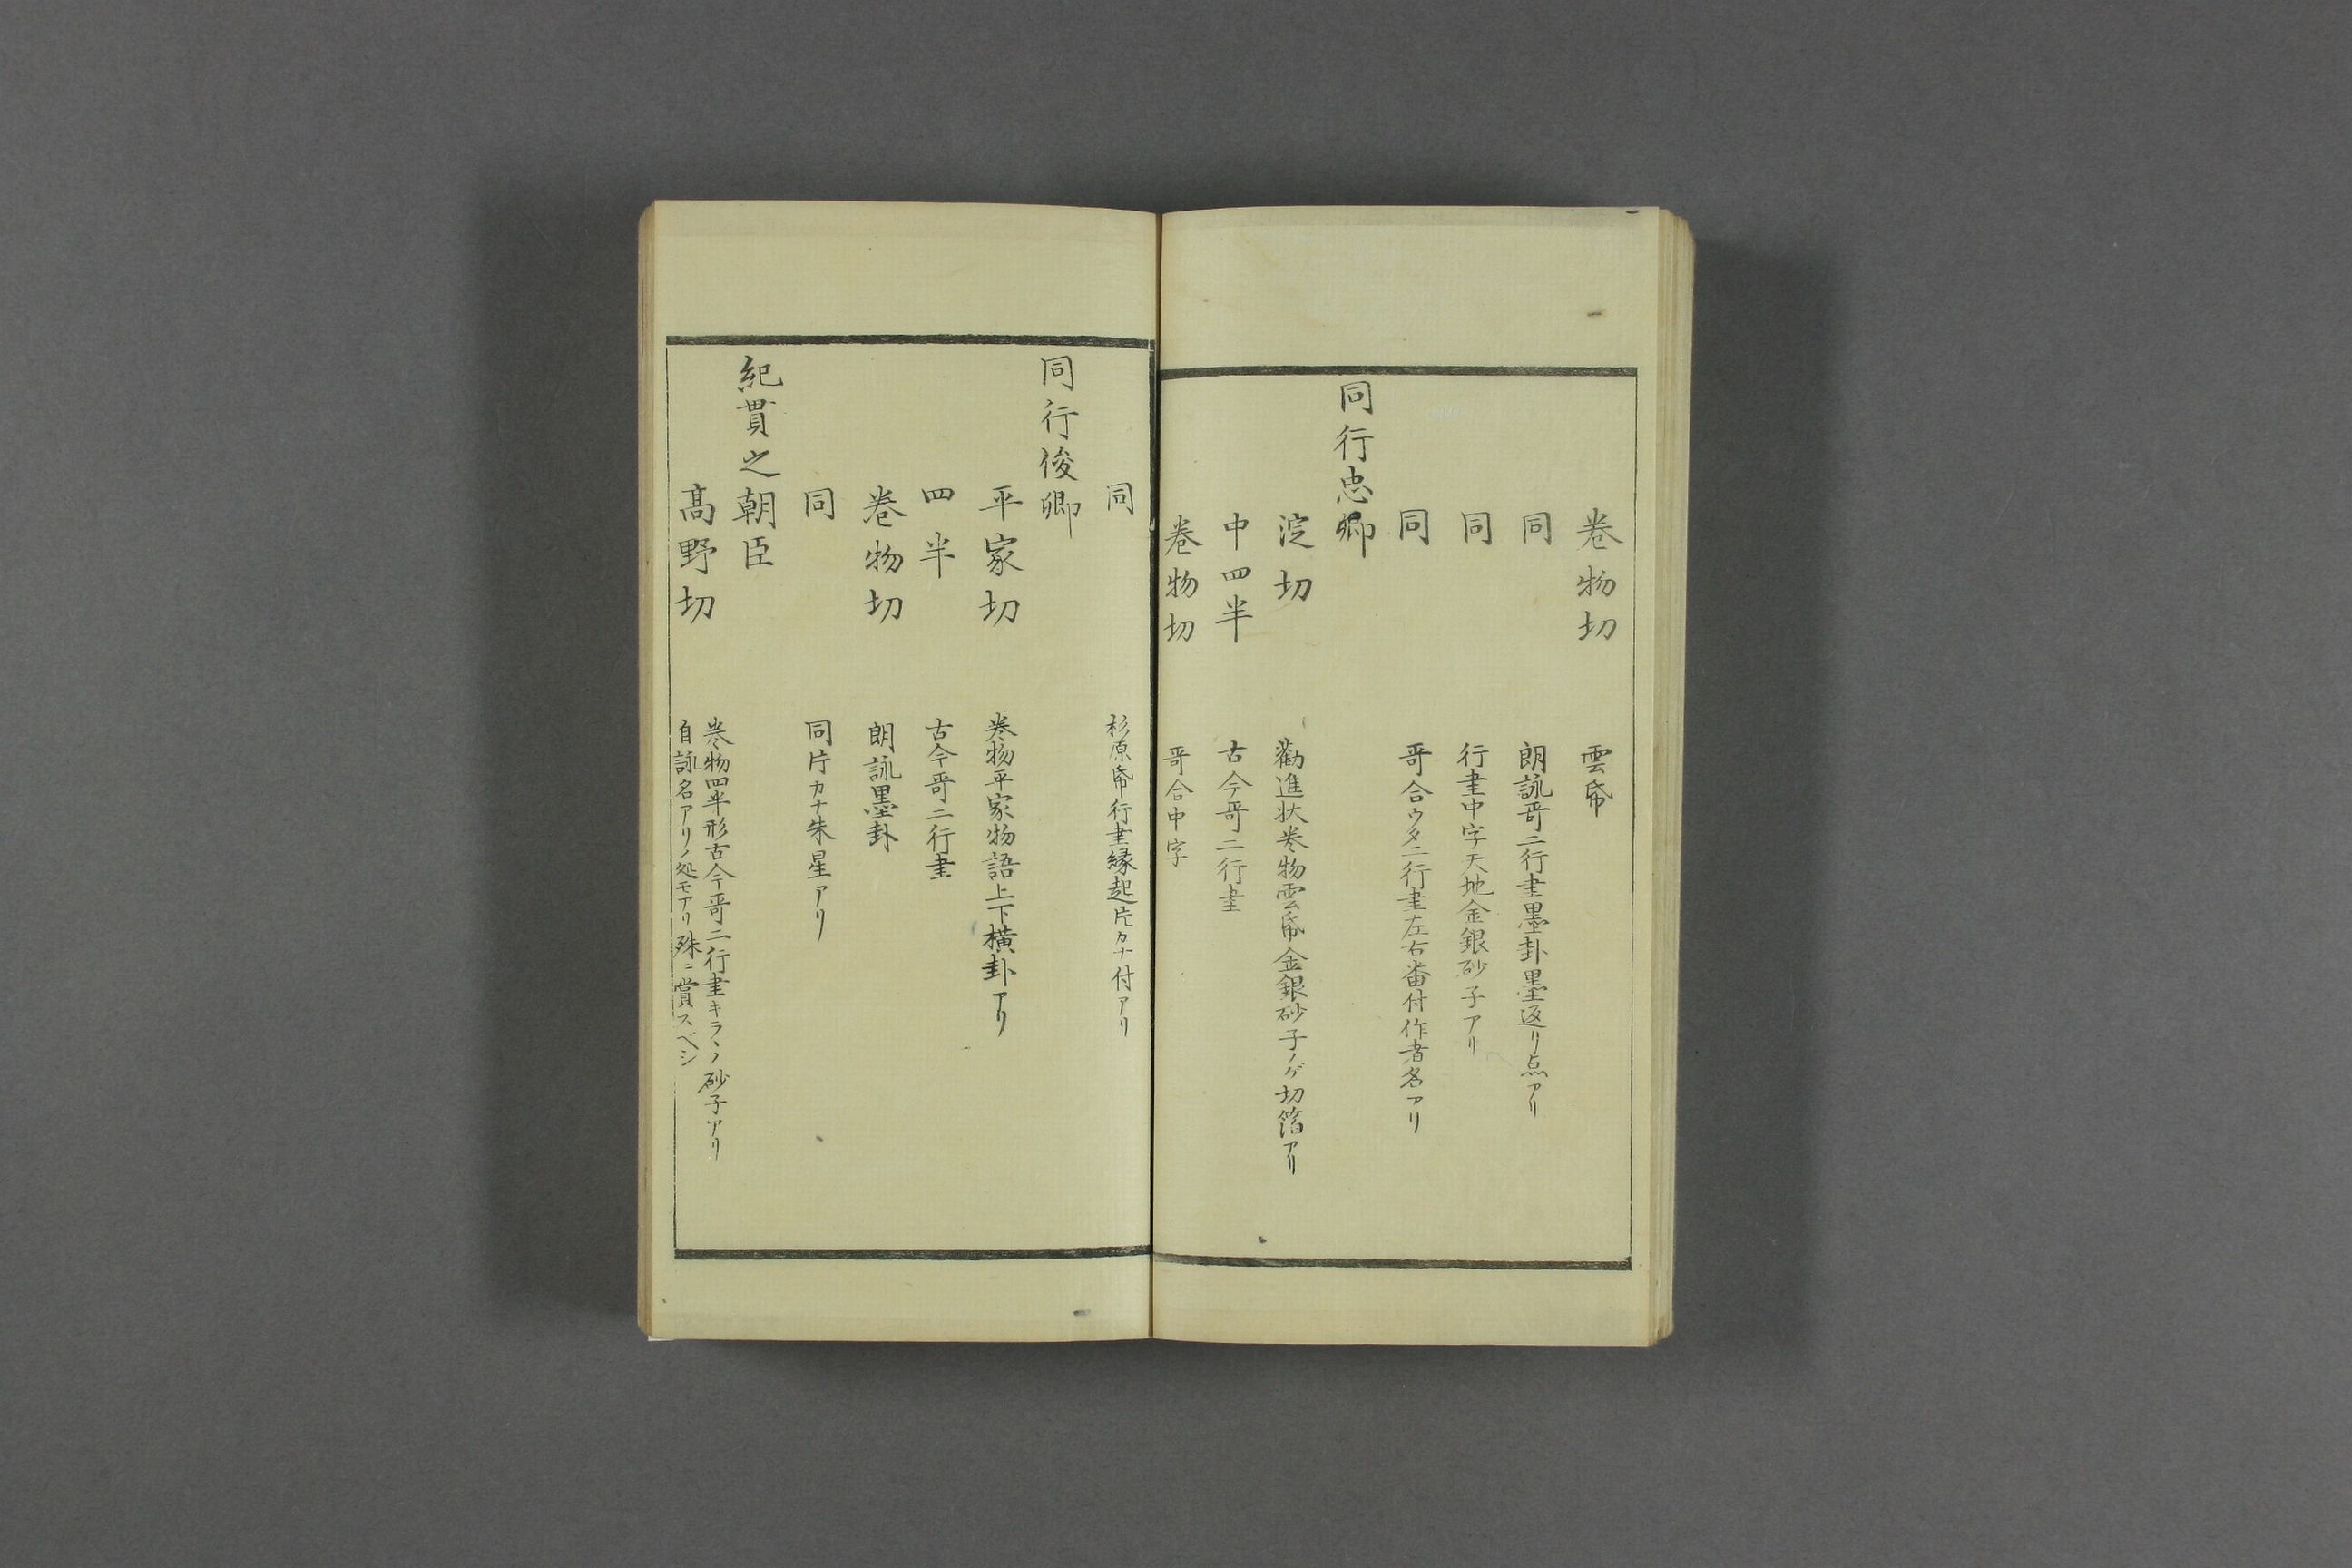 巻物切 雲帋
同 朗詠哥二行書墨卦墨返リ点アリ
同 行書中字天地金銀砂子アリ
同 哥合ウタ二行書左右番付作者名アリ
同行忠卿
淀切 勸進状巻物雲帋金銀砂子ノゲ切箔アリ
中四半 古今哥二行書
巻物切 哥合中字
同 杉原帋行書縁起片カナ付アリ
同行俊卿
平家切 巻物平家物語上下横卦アリ
四半 古今哥二行書
巻物切 朗詠墨卦
同 同片カナ朱星アリ
紀貫之朝臣
髙野切 巻物四半形古今哥二行書キラヽノ砂子アリ
自詠名アリノ処モアリ殊ニ賞スベシ